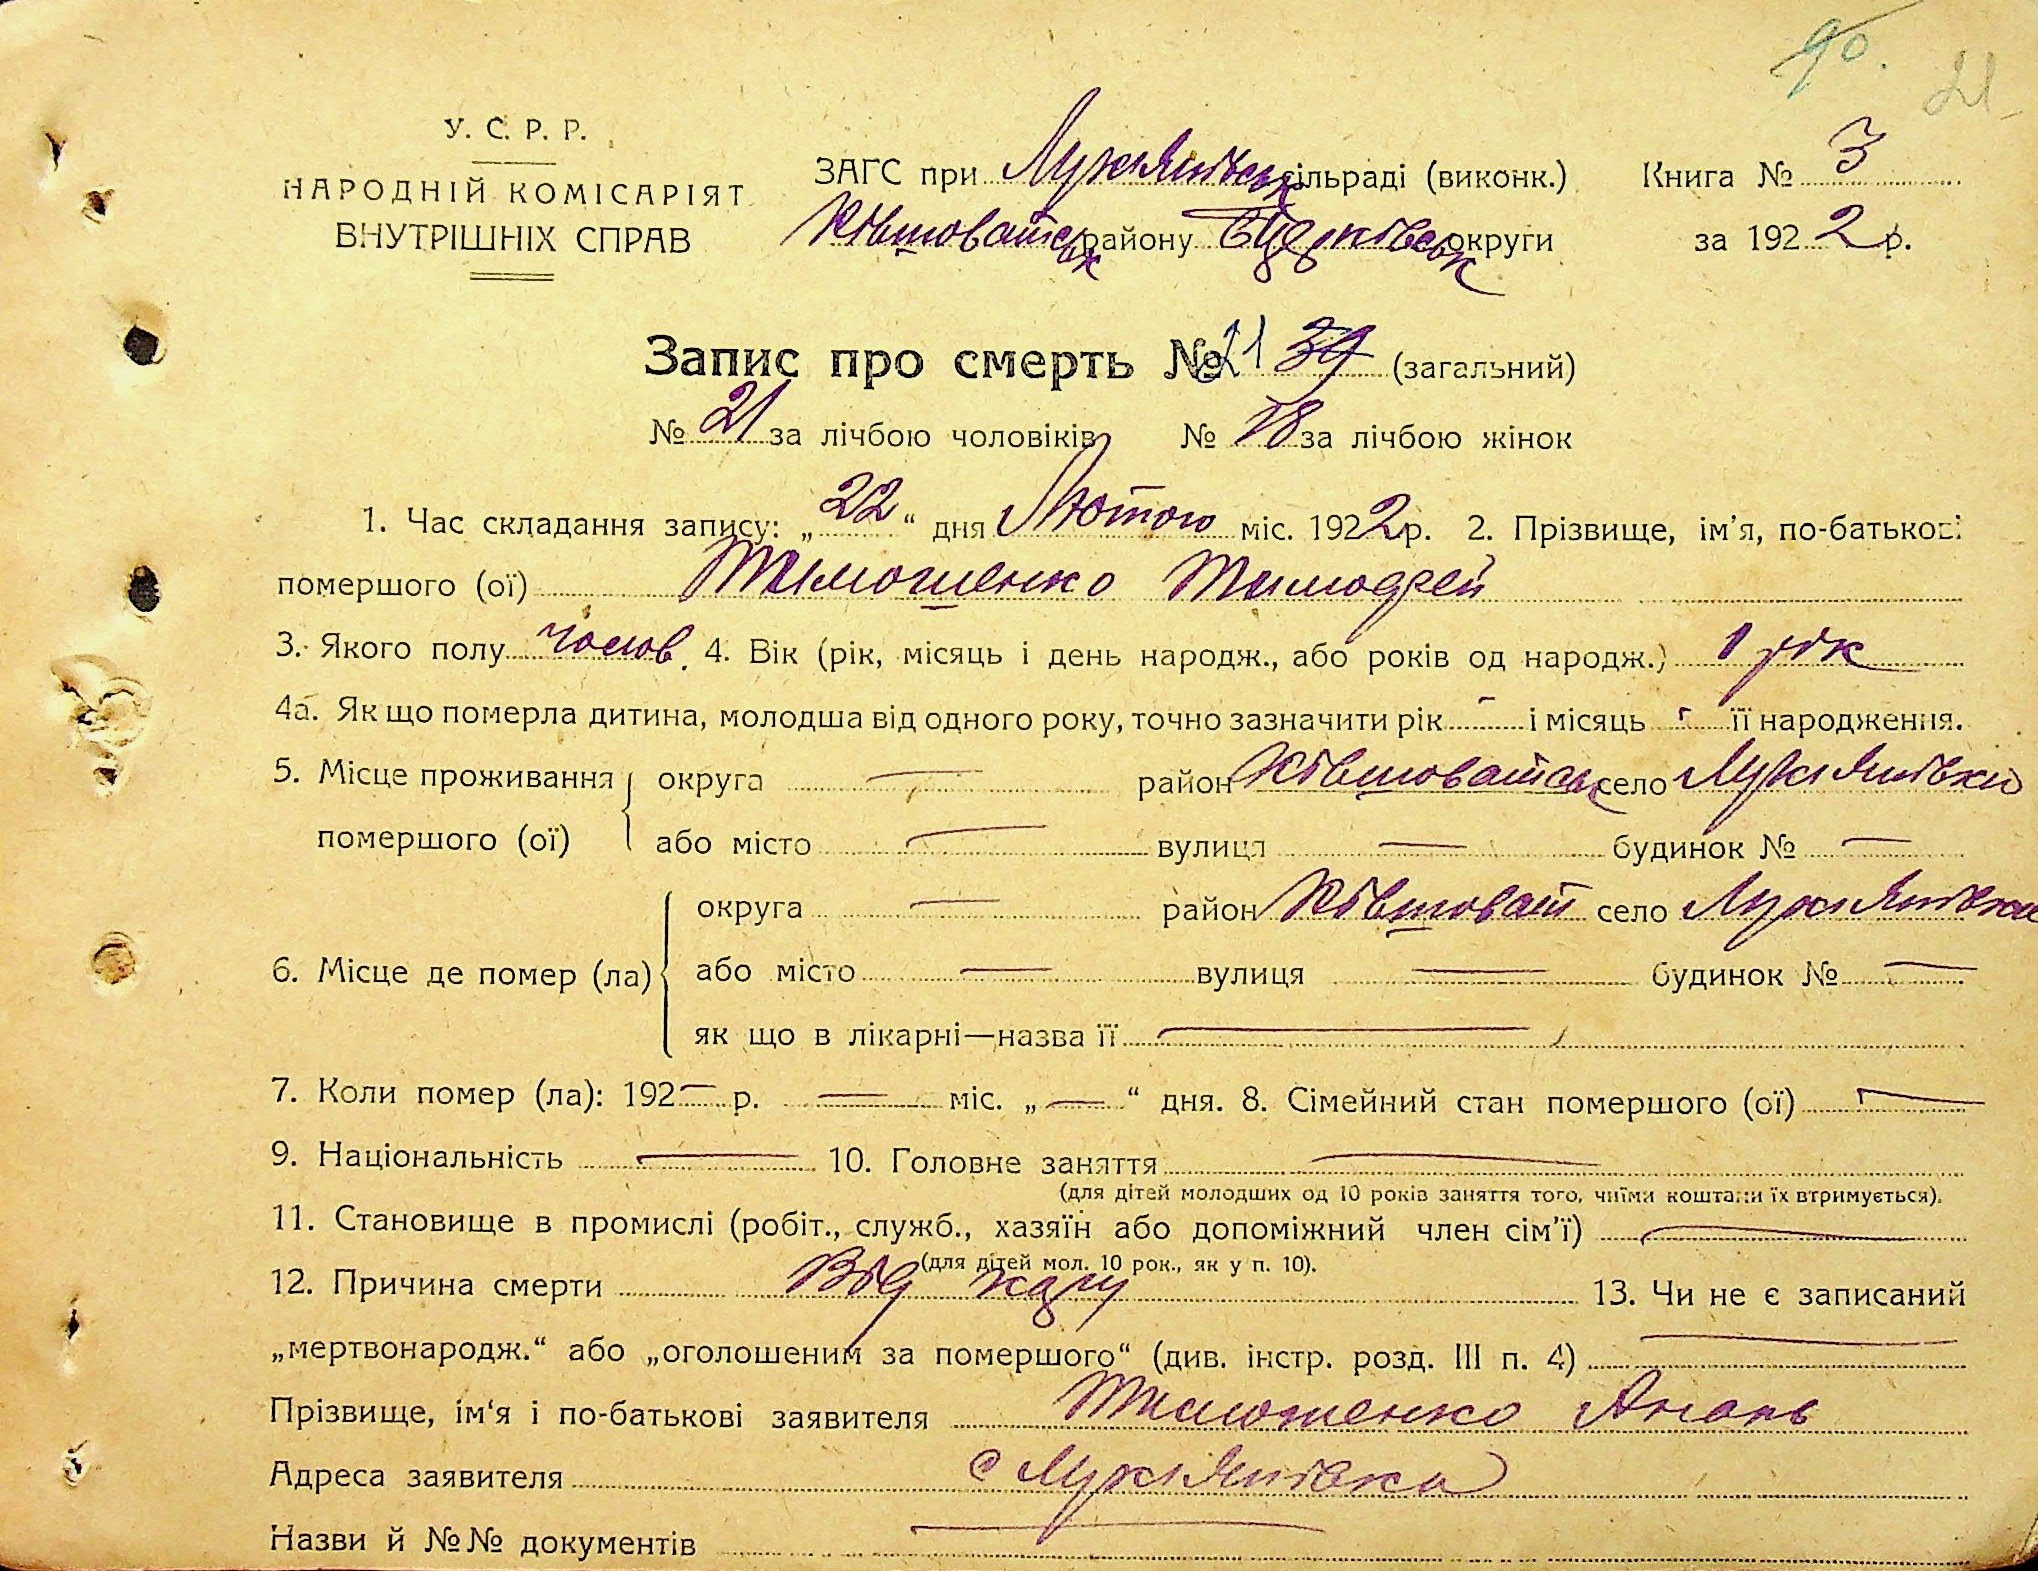 90.
21
У. С. Р. Р.
НАРОДНІЙ КОМІСАРІЯТ
ВНУТРІШНІХ СПРАВ
ЗАГС при Лукʼянівськ сільраді (виконк.) Книга № 3
Ківшоватськ району округи за 1922 р.
Запис про смерть № 21 39 (загальний)
№ 21 за лічбою чоловіків № 18 за лічбою жінок
1. Час складання запису: „22“ дня Лютого міс. 1922 р. 2. Прізвище, ім'я, по-батькові
помершого (ої) Тимошенко Тимофей
3. Якого полу чолов. 4. Вік (рік, місяць і день народж., або років од народж.) 1 рік
4а. Як що померла дитина, молодша від одного року, точно зазначити рік — і місяць — її народження.
5. Місце проживання округа — район Ківшоватськ село Лукʼянівка
помершого (ої) або місто — вулиця — будинок № —
округа — район Ківшоват село Лукʼянівка
6. Місце де помер (ла) або місто — вулиця — будинок № —
як що в лікарні—назва її —
7. Коли помер (ла): 192— р. — міс. „—“ дня. 8. Сімейний стан помершого (ої) —
9. Національність — 10. Головне заняття —
(для дітей молодших од 10 років заняття того, чиїми коштами їх втримується).
11. Становище в промислі (робіт., служб., хазяїн або допоміжний член сім'ї) —
(для дітей мол. 10 рок., як у п. 10).
12. Причина смерти Від 13. Чи не є записаний
„мертвонародж.“ або „оголошеним за помершого“ (див. інстр. розд. III п. 4) —
Прізвище, ім'я і по-батькові заявителя Тимошенко Анань
Адреса заявителя с Лукʼянівка
Назви й №№ документів —